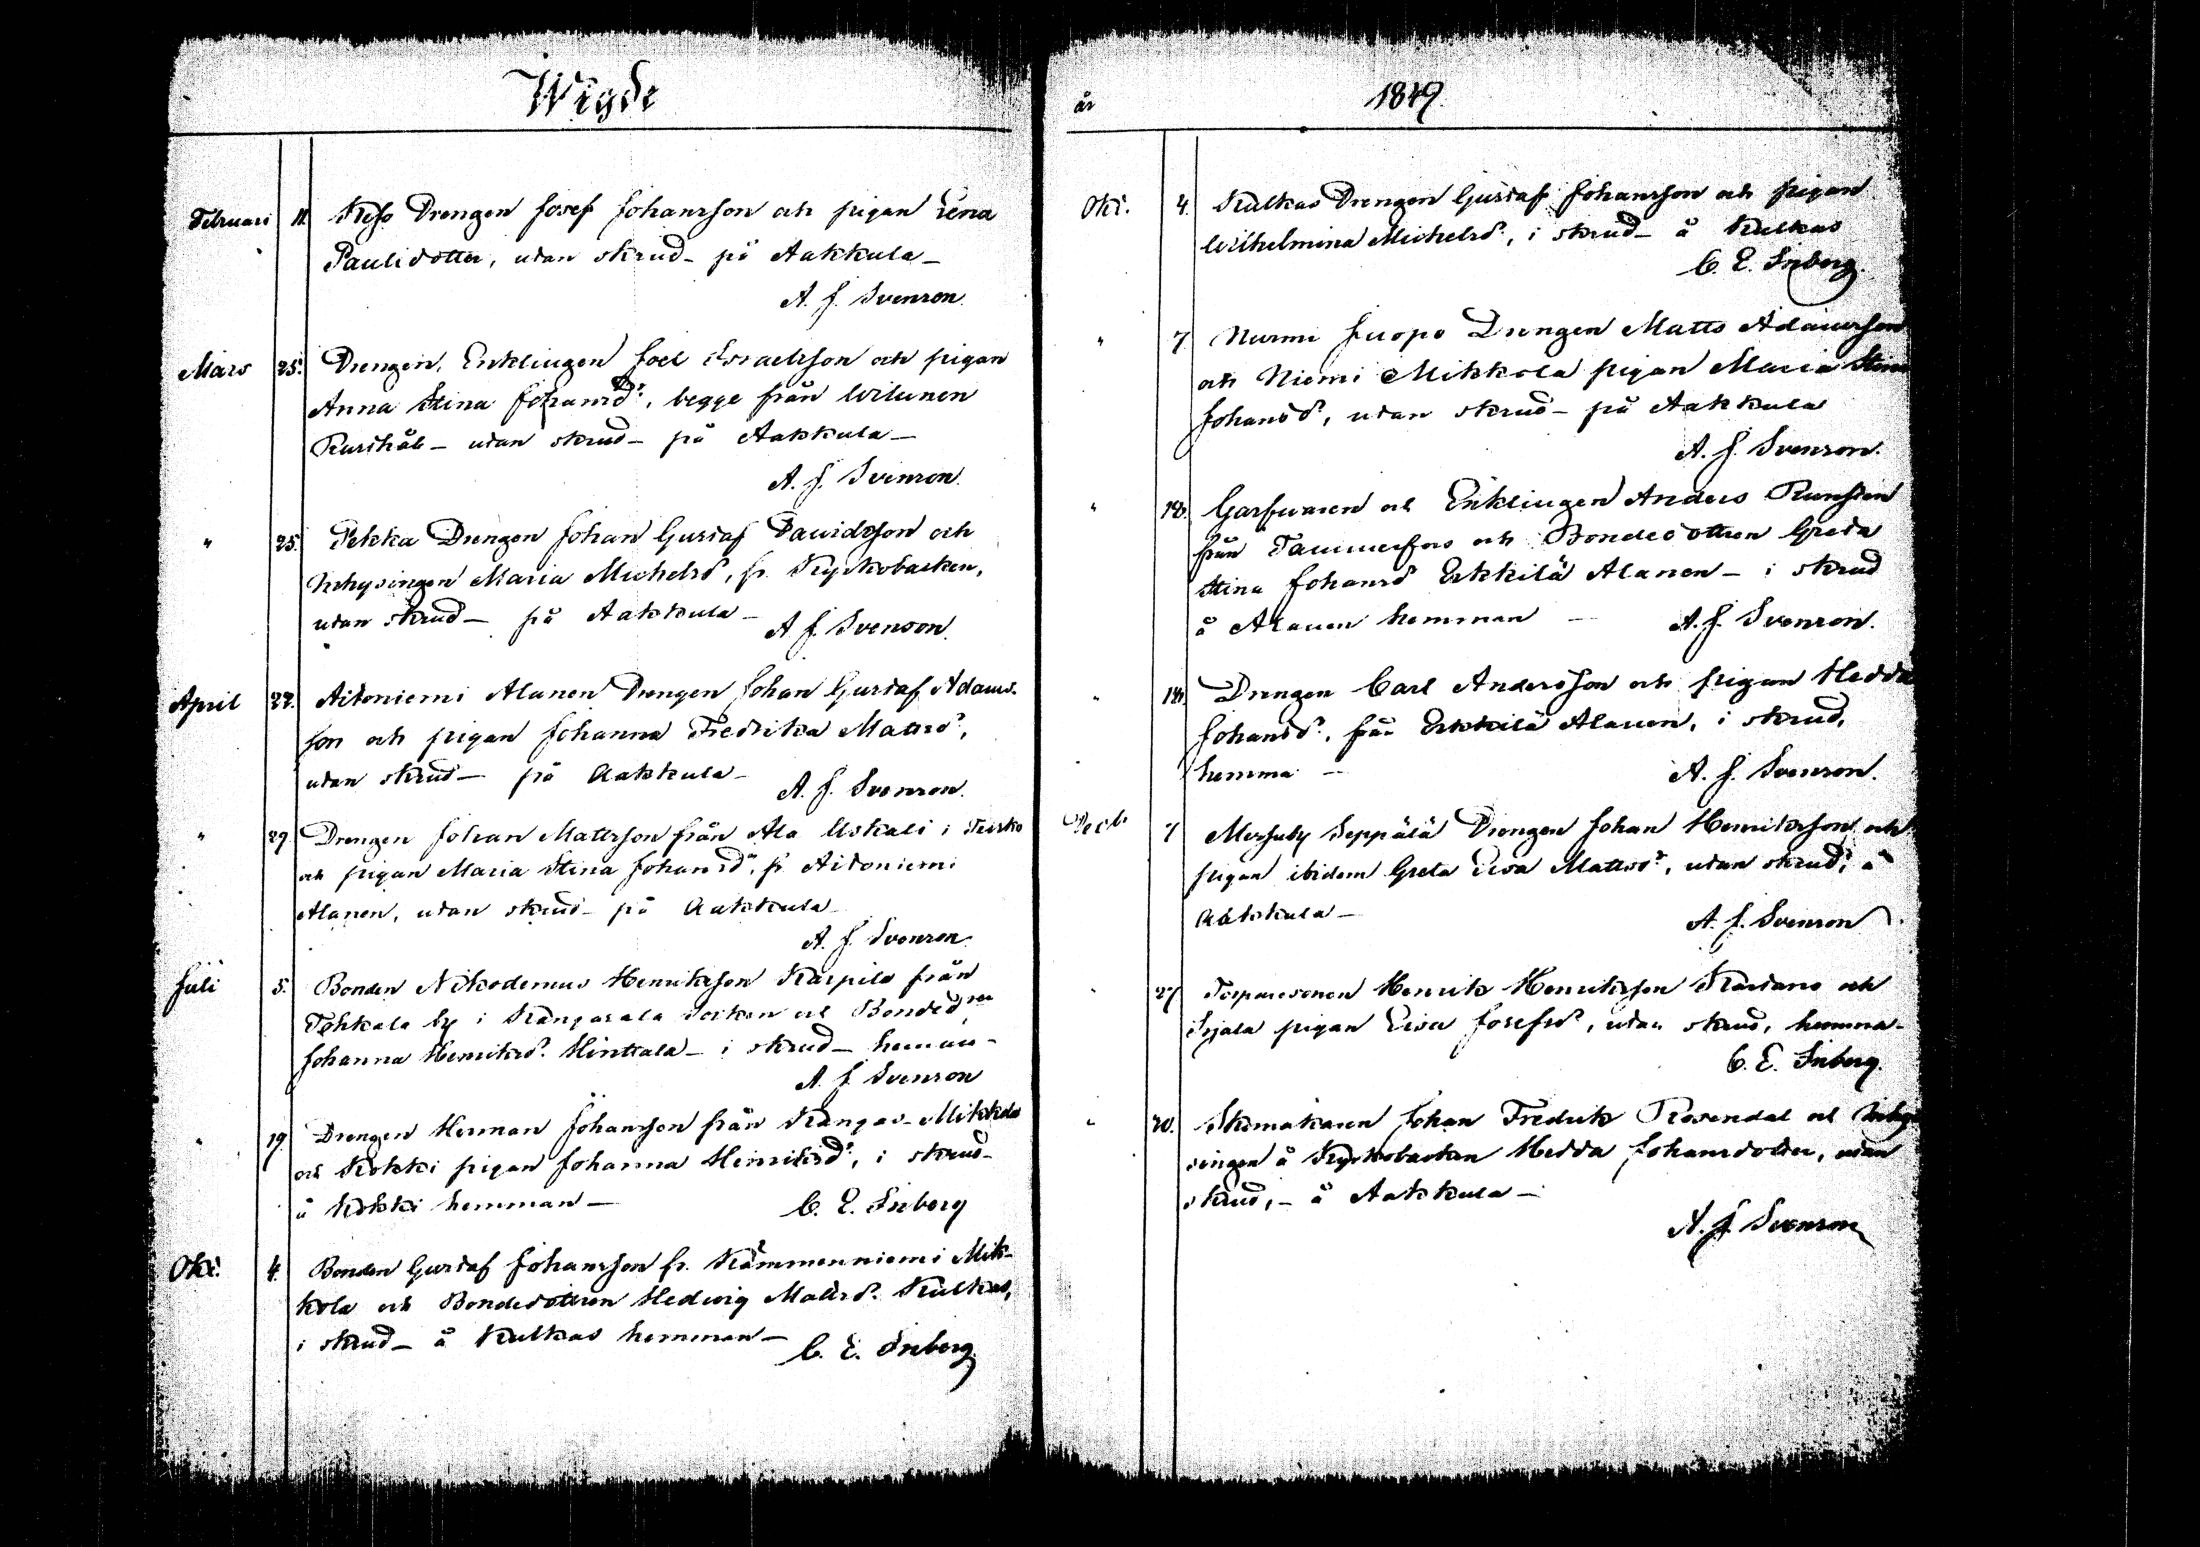 Wigde
Februari 11. Keso Drengen Josef Johansson och pigan Lena
Paulidotter, utan skrud - på Aakkula -
A. J. Svenson.
Mars 25. Drengen, Enklingen Joel Israelsson och pigan
Anna Stina Johansdr, begge från Wilunen
Rusthåll - utan skrud - på Aakkula -
A. J. Svenson.
" 25. Pekka Drengen Johan Gustaf Davidsson och
Inhysingen Maria Michelsd, fr. Kyrkobacken,
utan skrud - på Aakkula -
A J. Svenson.
April 22. Aitoniemi Alanen Drengen Johan Gustaf Adams-
son och pigan Johanna Fredrika Mattsdr,
utan skrud - på Aakkula -
A. J. Svenson.
" 29. Drengen Johan Mattsson från Ala Uskali i Teisko
och pigan Maria Stina Johansdr, fr Aitoniemi
Alanen, utan skrud - på Aakkula
A. J. Svenson.
Juli 5. Bonden Nikodemus Henriksson Karpila från
i Kangasala Socken och Bonded,ren
Johanna Henriksd. Hinttala - i skrud - hemma -
A. J. Svenson
" 19. Drengen Herman Johansson från Kangas-Mikkola
och Kokki pigan Johanna Henriksdr, i skrud -
å Kokki hemman -
C. E. Inberg
Okt. 4. Bonden Gustaf Johansson fr. Kämmenniemi Mik-
kola och Bondedottren Hedvig Mattsd. Kulkas,
i skrud - å Kulkas hemman -
C. E. Inberg.
år 1849.
Okt. 4. Kulkas Drengen Gustaf Johansson och pigan
Wilhelmina Michelsd, i skrud - å Kulkas
C. E. Inberg.
" 7. Nurmi Juopo Drengen Matts Adamsson
och Niemi Mikkola pigan Maria Stina
Johansd, utan skrud - på Aakkula
A. J. Svenson.
" 18. Garfvaren och Enklingen Anders
från Tammerfors och Bondedottren Greta
Stina Johansd Erkkilä Alanen - i skrud
å Alanen hemman -
A. J. Svenson.
" 18. Drengen Carl Andersson och pigan Hedda
Johansd, från Erkkilä Alanen, i skrud,
hemma -
A. J. Svenson.
Decb. 7 Seppälä Drengen Johan Henriksson och
pigan ibidem Greta Eva Mattsd, utan skrud, å
Aakkula -
A. J. Svenson.
" 27 Torparesonen Henrik Henriksson och
Irjala pigan Eva Josefsd, utan skrud, hemma -
C. E. Inberg.
" 30. Skomakaren Johan Fredrik Rosendal och Inhy-
singen å Kyrkobacken Hedda Johansdotter, utan
skrud, - å Aakkula -
A. J. Svenson